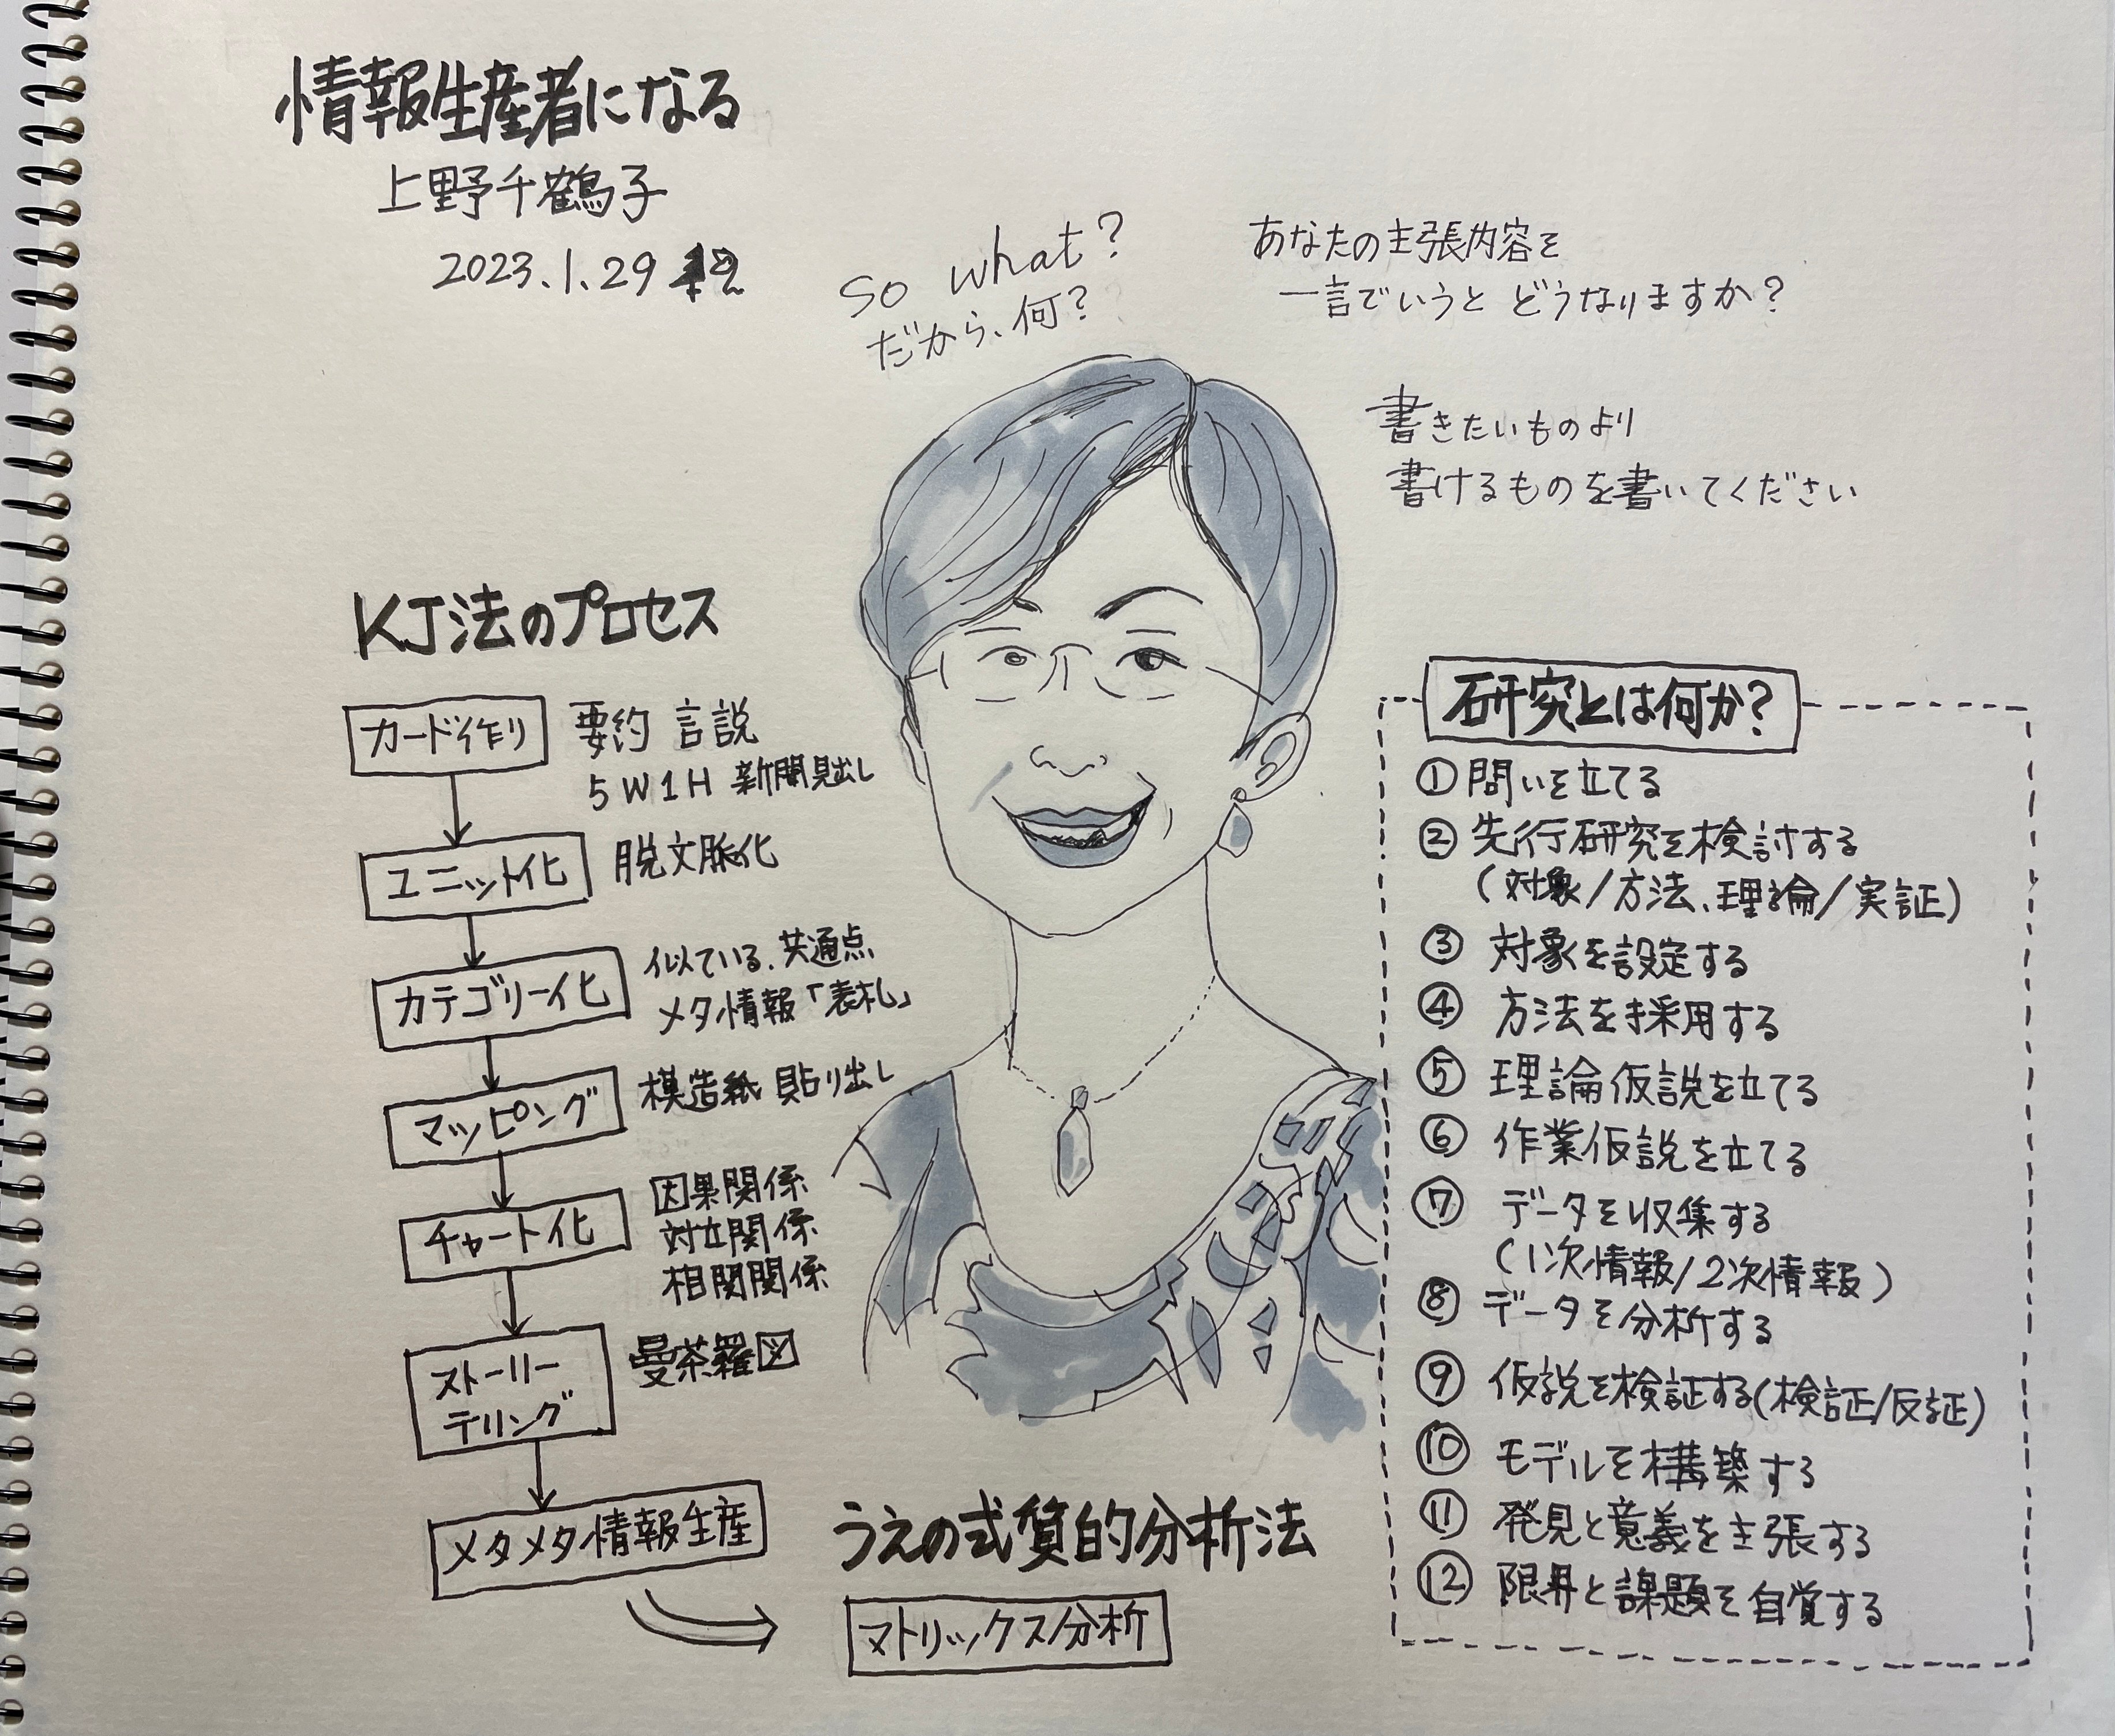 情報生産者になる
上野千鶴子
2023.1.29
so what?
だから、何?
あなたの主張内容を
一言でいうと どうなりますか?
書きたいものより
書けるものを書いてください
KJ法のプロセス
カード作り
要約 言説
5W1H 新聞見出し
ユニット化
脱文脈化
カテゴリー化
似ている、共通点
メタ情報「表札」
マッピング
模造紙 貼り出し
チャート化
因果関係
対立関係
相関関係
ストーリー
テリング
曼荼羅図
メタメタ情報生産
うえの式質的分析法
マトリックス分析
研究とは何か?
①問いを立てる
②先行研究を検討する
(対象/方法、理論/実証)
③ 対象を設定する
④ 方法を採用する
⑤ 理論仮説を立てる
⑥ 作業仮説を立てる
⑦ データを収集する
(1次情報/2次情報)
⑧ データを分析する
⑨ 仮説を検証する(検証/反証)
⑩ モデルを構築する
⑪ 発見と意義を主張する
⑫ 限界と課題を自覚する